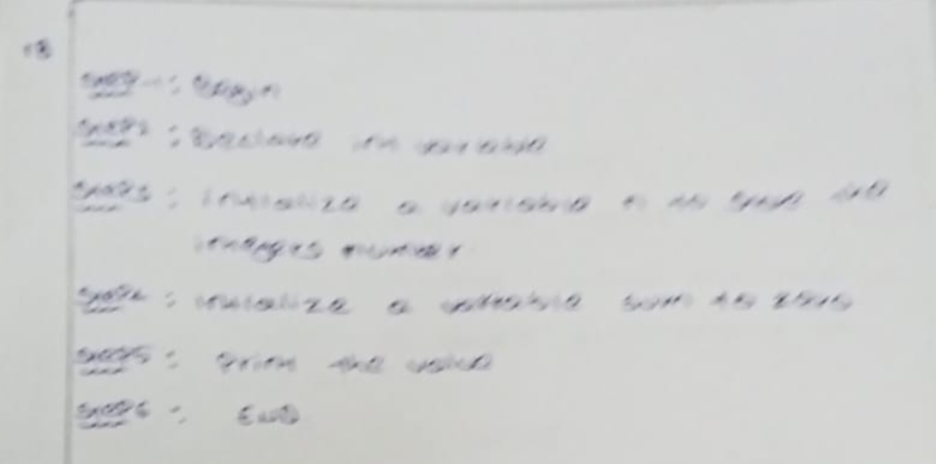 18
Step 1: Begin
Step 2: Declare variable
Step 3: initialize a variable n to the
integer number
Step 4: initialize a variable sum to zero
Step 5: Print the value
Step 6: End